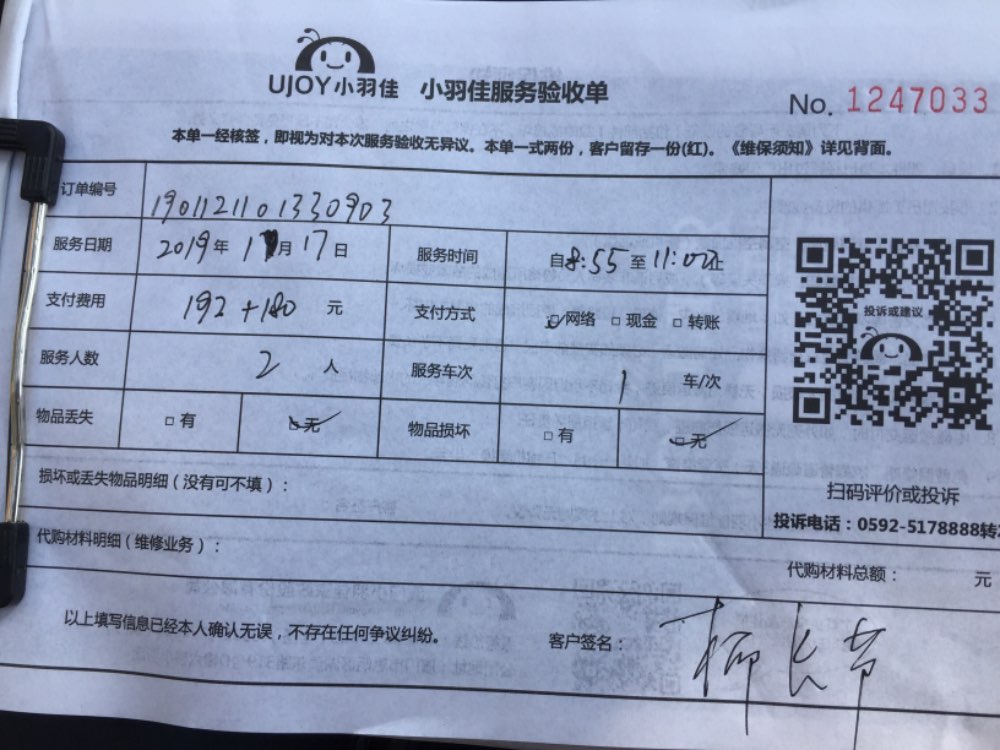 UJOY小羽佳 小羽佳服务验收单
No. 1247033
本单一经核签，即视为对本次服务验收无异议。本单一式两份，客户留存一份(红)。《维保须知》详见背面。
订单编号 1901121101330903
服务日期 2019年1月17日 服务时间 自8:55至11:02止
支付费用 192+180 元 支付方式 □网络 □现金 □转账
服务人数 2 人 服务车次 1 车/次
物品丢失 □有 □无 物品损坏 □有 □无
损坏或丢失物品明细（没有可不填）：
投诉或建议
扫码评价或投诉
投诉电话：0592-5178888转
代购材料明细（维修业务）：
代购材料总额： 元
以上填写信息已经本人确认无误，不存在任何争议纠纷。 客户签名：柳长